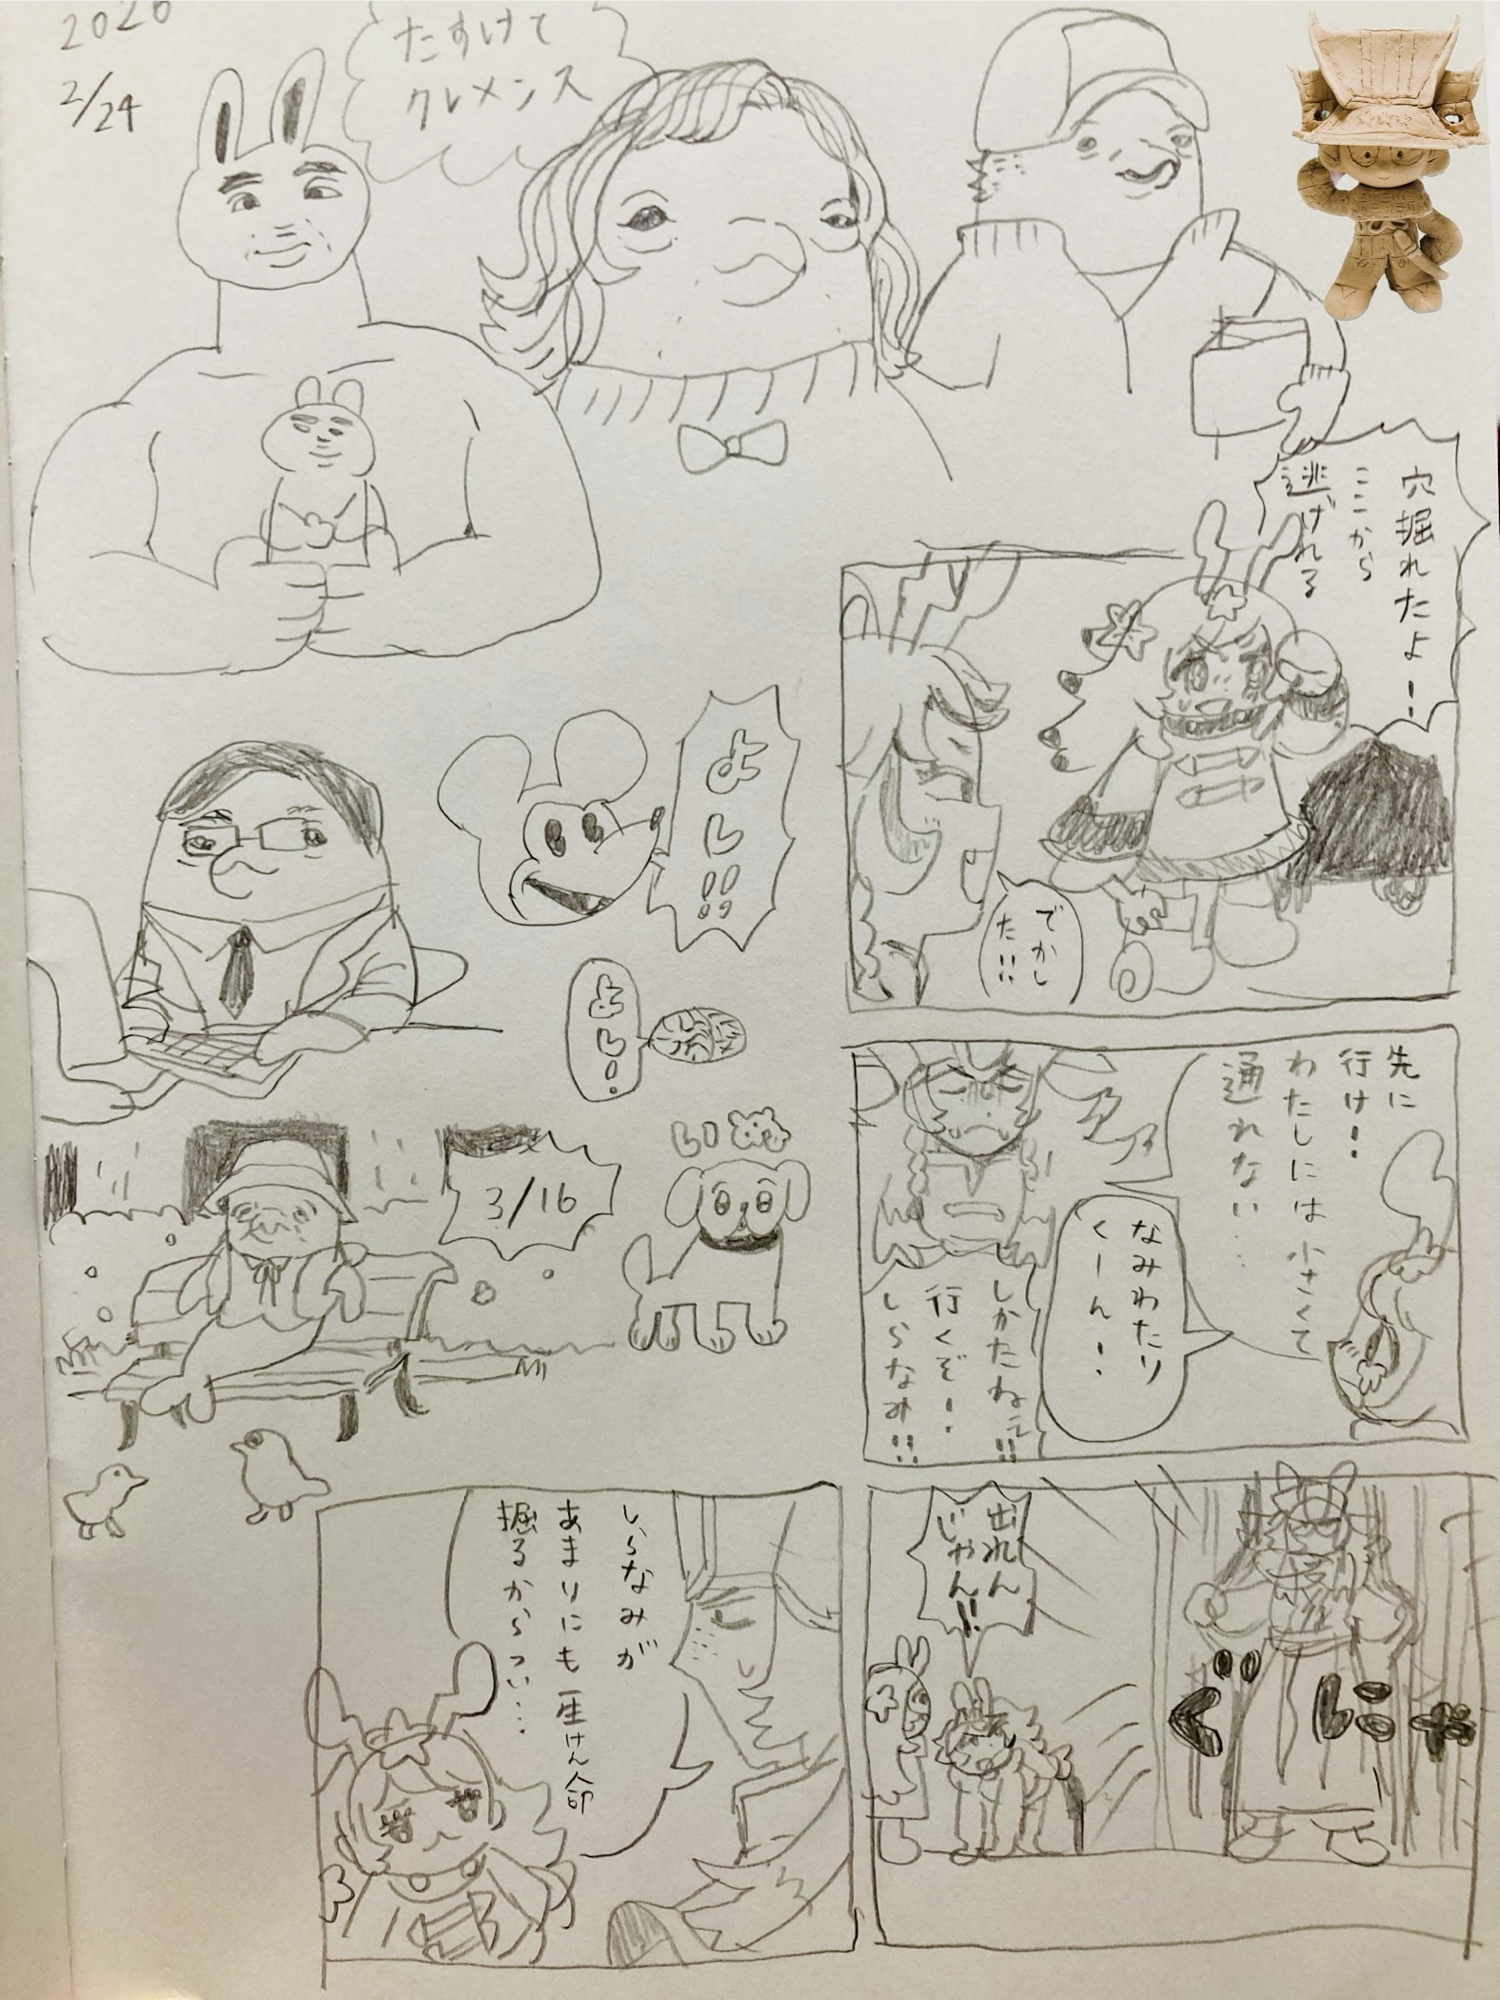 2020
2/24
たすけて
クレメンス
穴掘れたよ！
ここから
逃げれる
でかし
た!!
よし!!
よし！
3/16
いぬ
先に
行け！
わたしには小さくて
通れない…
なみわたり
くーん！
しかたねえ!!
行くぞ！
しらなみ!!
ぐにゃ
出れん
じゃん!!
しらなみが
あまりにも一生けん命
掘るからつい…